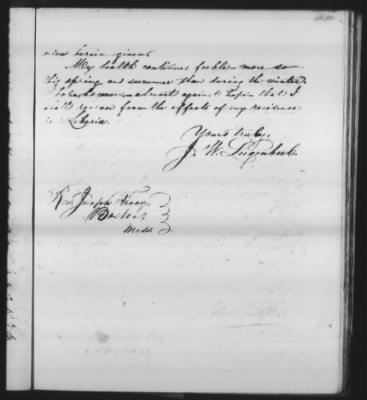 view herein given.
My health continues feeble; more so
this spring and summer than during the winter.
I hope almost against hope that I
shall recover from the effects of my residence
in Liberia.
Yours truly,
J. W. Lugenbeel.
Rev. Joseph Tracy,
Boston,
Mass.